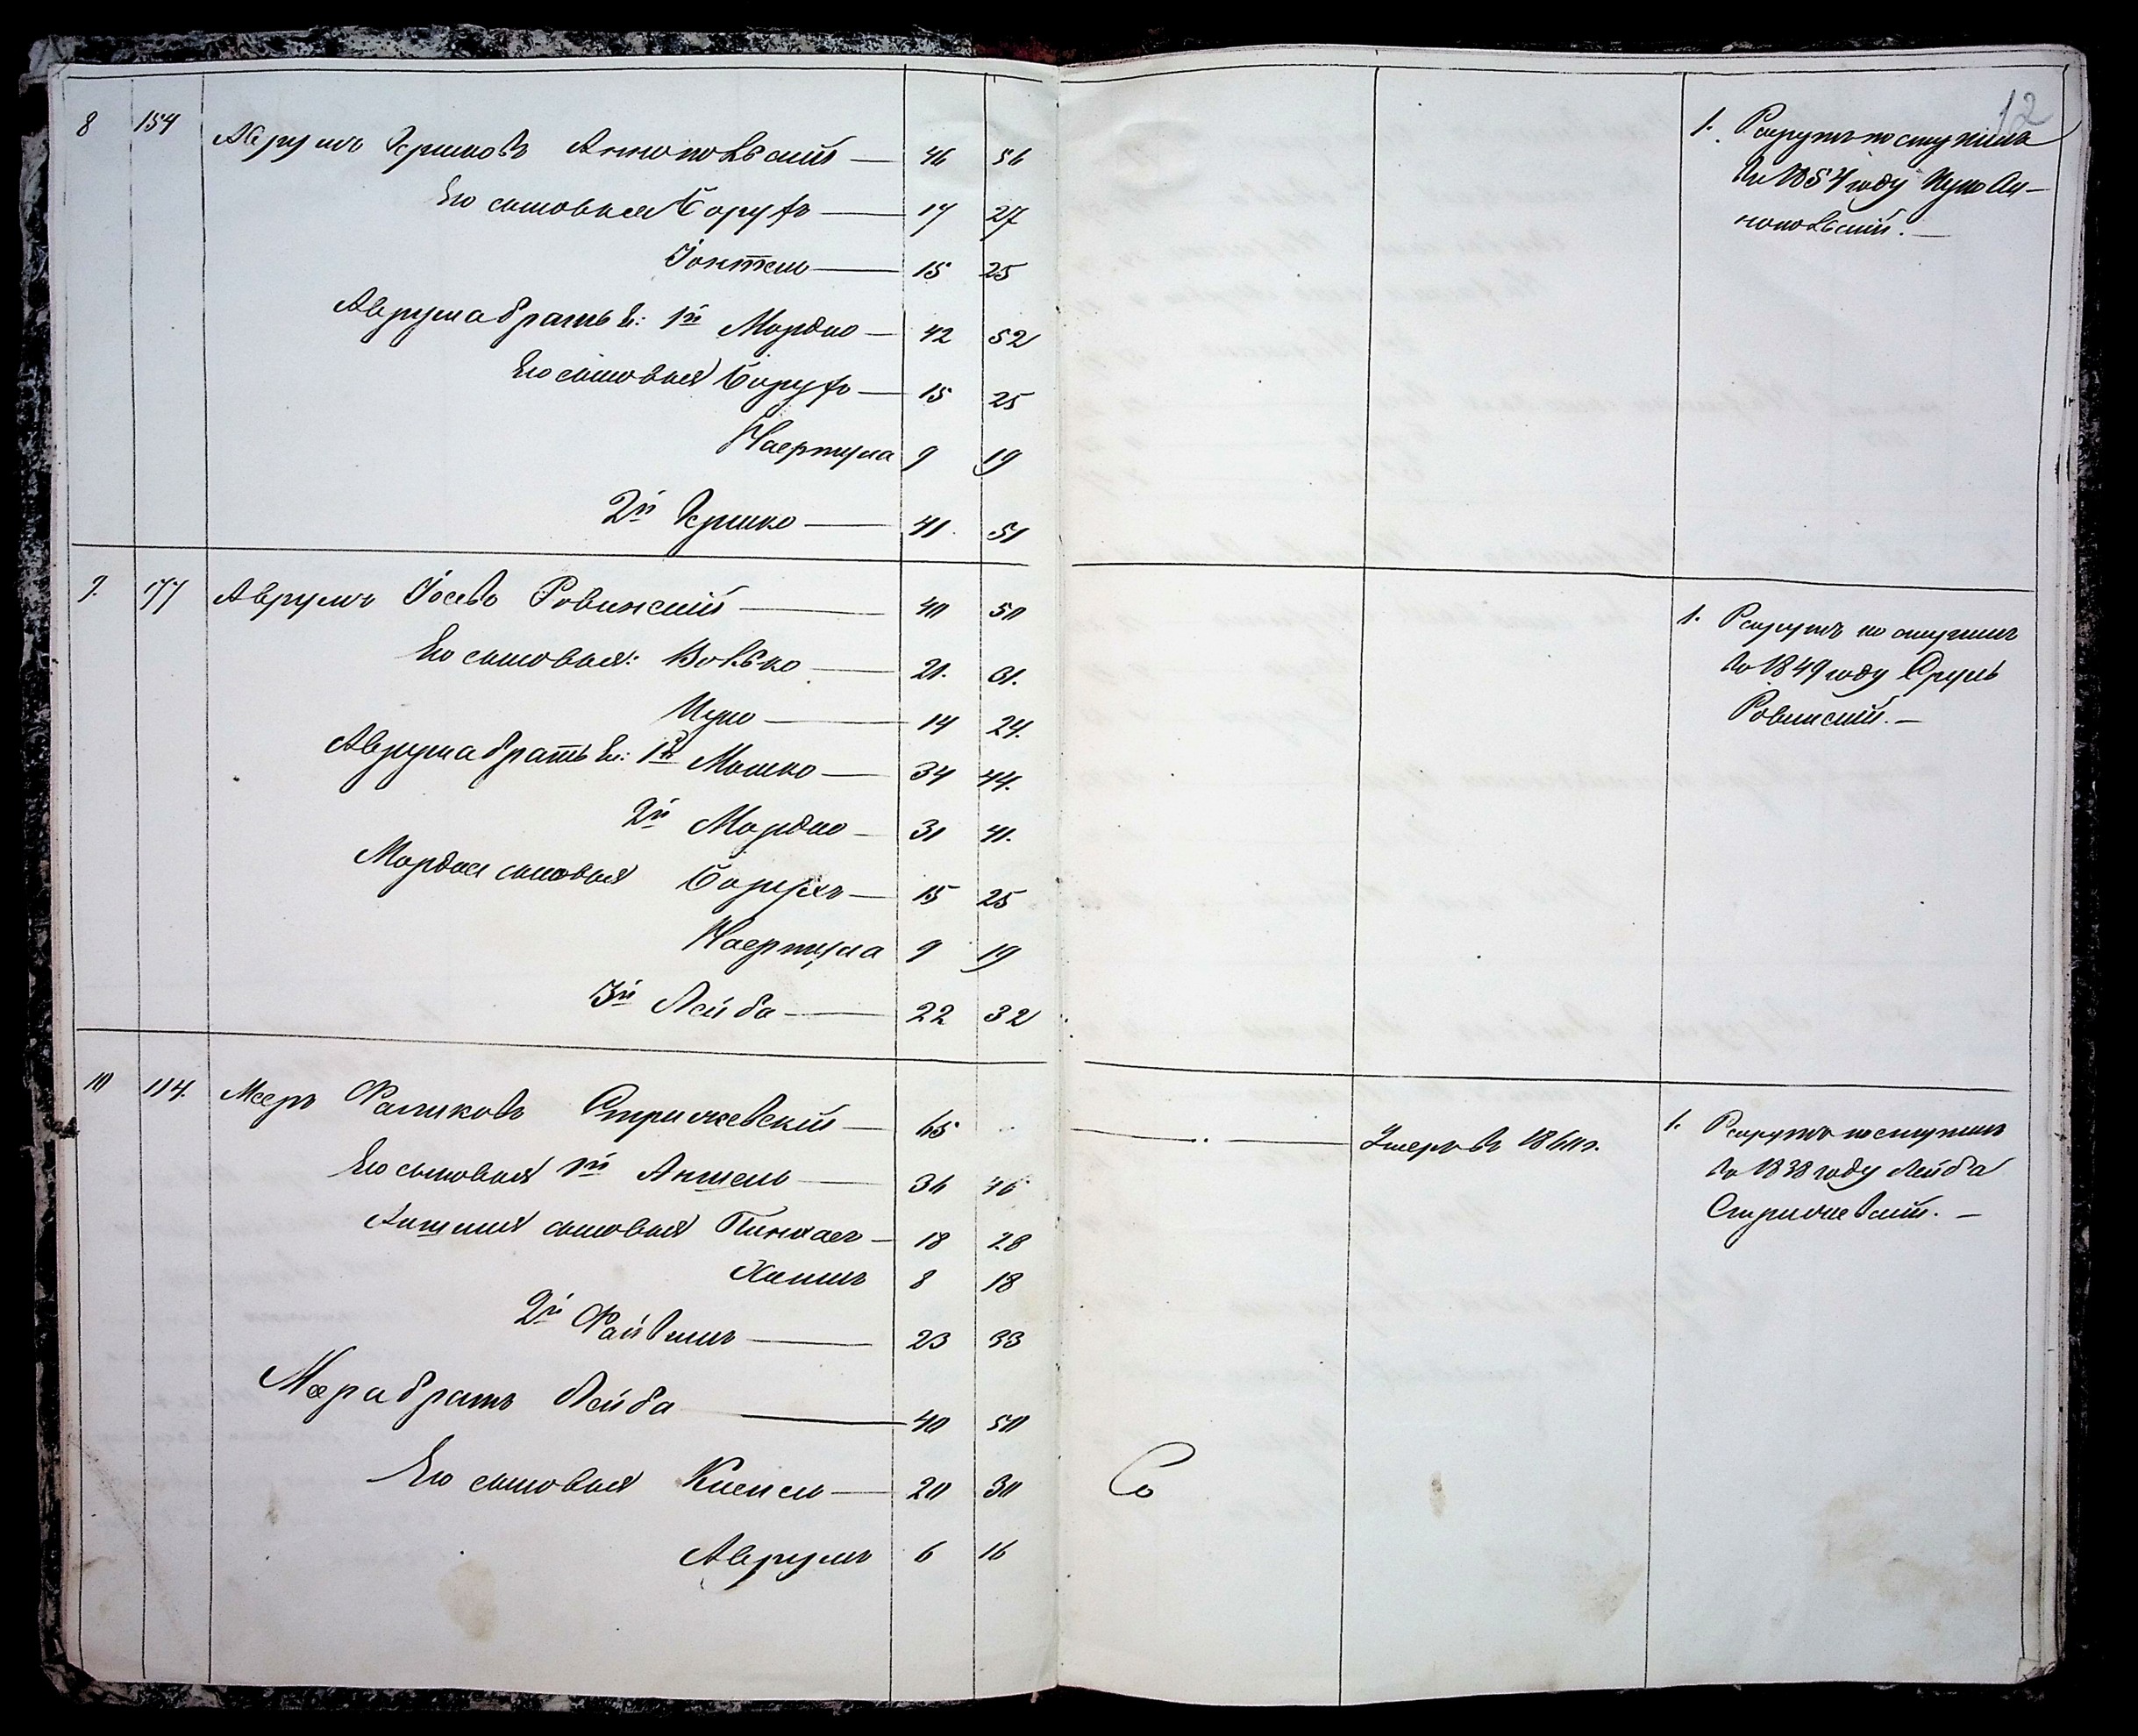 8 154 Аврумъ Хршковъ Антоновскій — 46 56
Его сыновья Борухъ — 17 27
Іонтель — 15 25
Аврума братья: 1й Мордко — 42 52
Его сыновья Борухъ — 15 25
9 19
2й — 41. 51
9. 177 Аврумъ Іосевъ Ровинскій — 40 50
Его сыновья: Вовко — 21. 31.
Ицко — 14 24.
Аврума братья: 1й Мошко — 34 44.
2й Мордко — 31 41.
Мордки сыновья Борухъ — 15 25
9 19
3й Лейба — 22 32
10 114. Мееръ Фаликовъ Стричевскій — 65
Его сыновья 1й Аншель — 36 46
Аншеля сыновья Пинхасъ — 18 28
Хаимъ 8 18
2й Файвишъ — 23 33
Меера братъ Лейба — 40 50
Его сыновья Кисель — 20 30
Аврумъ 6 16
12
1. Рекрутъ поступилъ
въ 1854 году Ицко Ан-
тоновскій. —
1. Рекрутъ поступилъ
въ 1849 году Сруль
Ровинскій. —
— . — Умеръ въ 1860 г.
1. Рекрутъ поступилъ
въ 1838 году Лейба
Стричевскій. —
Со